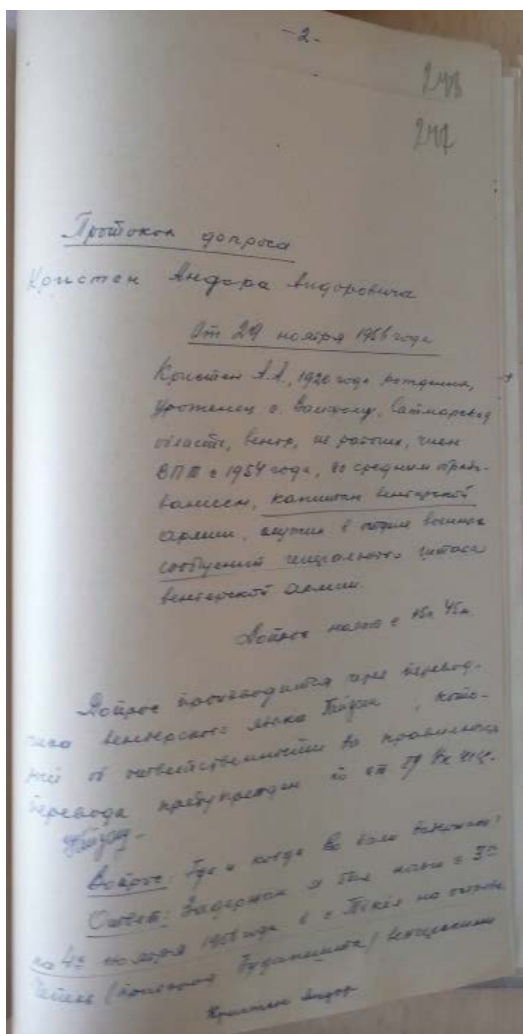 -2-
248
247
Протокол допроса
Кристен Андора Андоровича
От 29 ноября 1956 года
Кристен А.А., 1920 года рождения,
уроженец с. Сатмарской
области, венгр, из рабочих, член
ВПТ с 1954 года, со средним образо-
ванием, капитан венгерской
армии, служил в отделе военных
сообщений генерального штаба
венгерской армии.
Допрос начат с 15ч 45м.
Допрос производится через перевод-
чика венгерского языка , кото-
рый об ответственности за правильность
перевода предупрежден по ст 89 УК
Вопрос: Где и когда Вы были задержаны?
Ответ: Задержан я был ночью с 3го
на 4е ноября 1956 года в с. Текел на острове
Чепель (пригород Будапешта)
Кристен Андор